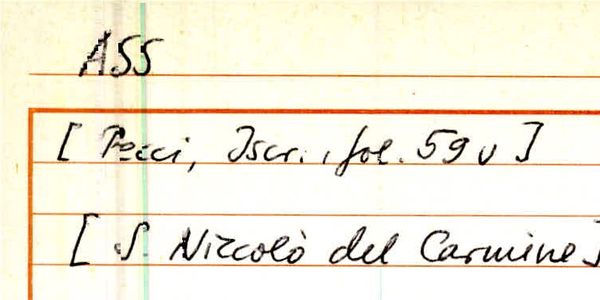 ASS
[ Pecci, Iscr., fol. 59 v ]
[ S. Niccolò del Carmine]